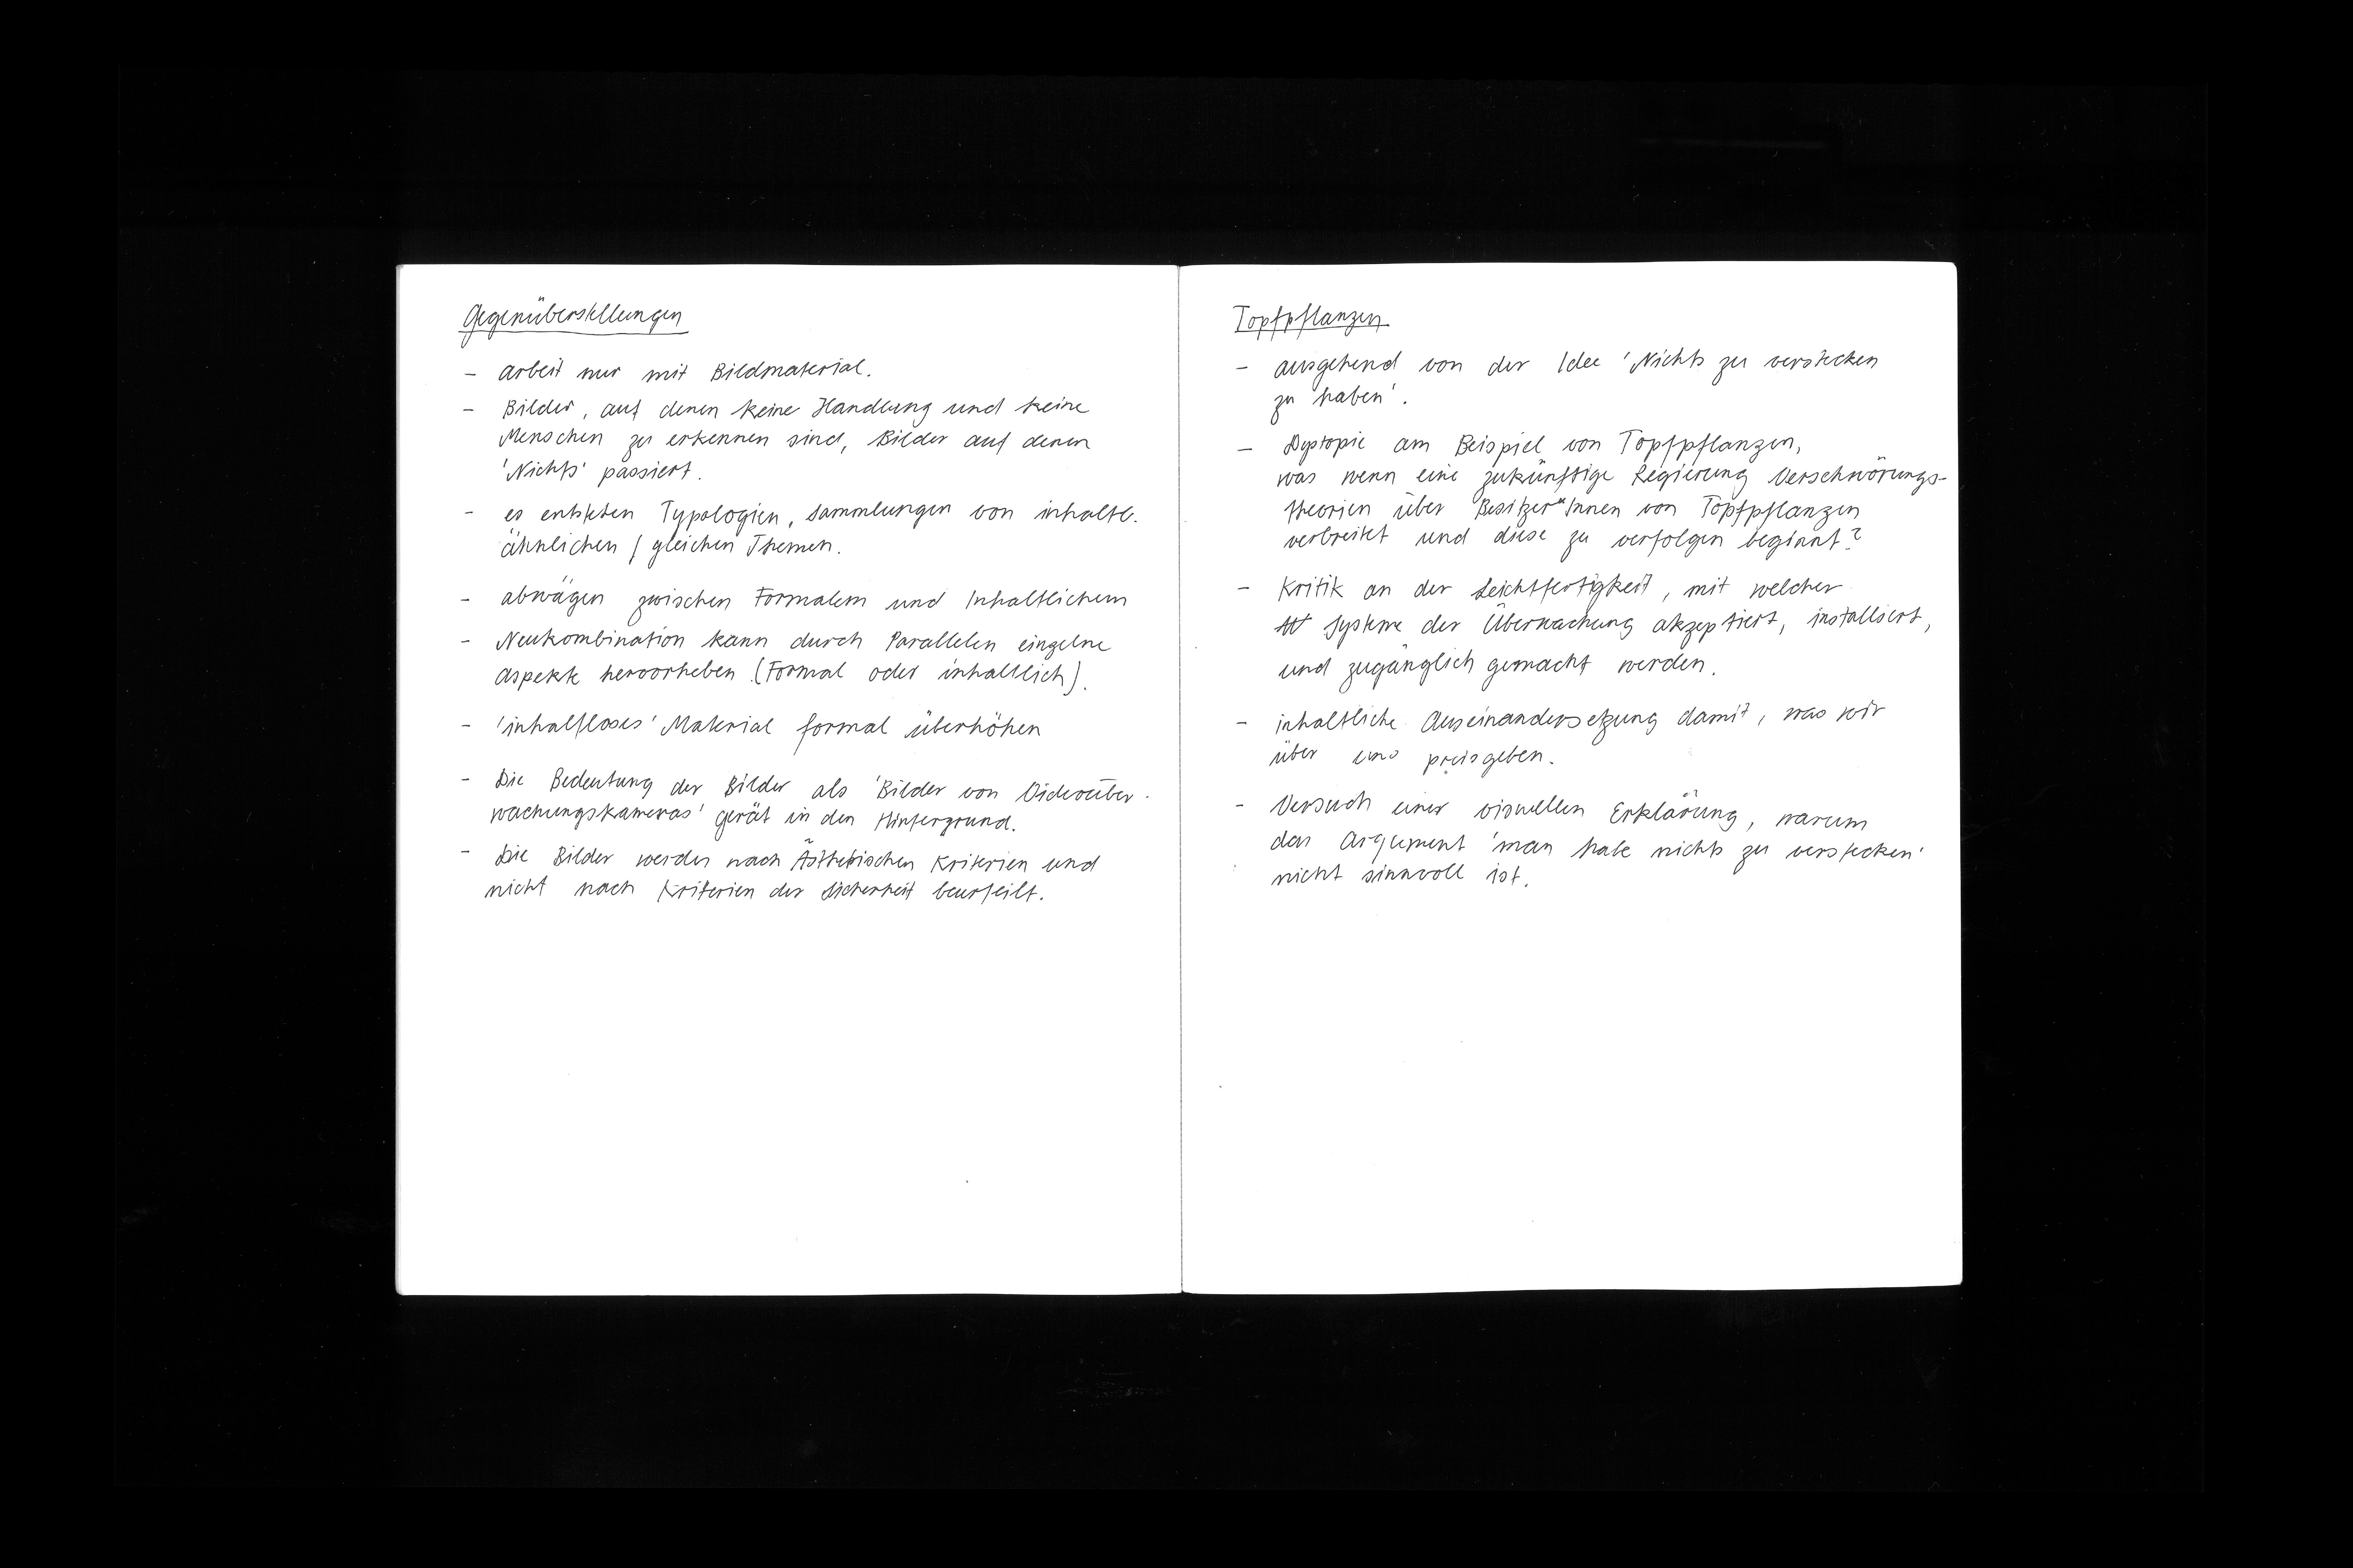 Gegenüberstellungen
- Arbeit nur mit Bildmaterial.
- Bilder, auf denen keine Handlung und keine
Menschen zu erkennen sind, Bilder auf denen
'Nichts' passiert.
- es entstehen Typologien, Sammlungen von inhaltl.
ähnlichen / gleichen Themen.
- abwägen zwischen Formalem und Inhaltlichem
- Neukombination kann durch Parallelen einzelne
Aspekte hervorheben (Formal oder inhaltlich).
- 'inhaltloses' Material formal überhöhen
- Die Bedeutung der Bilder als 'Bilder von Videoüber-
wachungskameras' gerät in den Hintergrund.
- Die Bilder werden nach Ästhetischen Kriterien und
nicht nach Kriterien der Sicherheit beurteilt.
Topfpflanzen
- ausgehend von der Idee 'Nichts zu verstecken
zu haben'.
- Dystopie am Beispiel von Topfpflanzen,
was wenn eine zukünftige Regierung Verschwörungs-
theorien über Besitzer*Innen von Topfpflanzen
verbreitet und diese zu verfolgen beginnt?
- Kritik an der Leichtfertigkeit, mit welcher
Systeme der Überwachung akzeptiert, installiert,
und zugänglich gemacht werden.
- inhaltliche Auseinandersetzung damit, was wir
über uns preisgeben.
- Versuch einer visuellen Erklärung, warum
das Argument 'man habe nichts zu verstecken'
nicht sinnvoll ist.